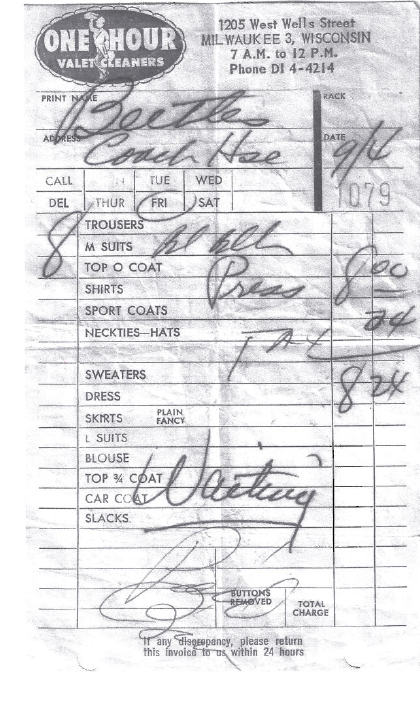 ONE HOUR
VALET CLEANERS
1205 West Wells Street
MILWAUKEE 3, WISCONSIN
7 A.M. to 12 P.M.
Phone DI 4-4214
PRINT NAME Beetles
RACK
ADDRESS Coach Hse
DATE 9/4
CALL TUE WED
1079
DEL THUR FRI SAT
TROUSERS
8 M SUITS
TOP O COAT Press 8 00
SHIRTS
SPORT COATS 24
NECKTIES—HATS TAX
SWEATERS 8 24
DRESS
SKIRTS PLAIN FANCY
L SUITS
BLOUSE
TOP ¾ COAT Waiting
CAR COAT
SLACKS
BUTTONS REMOVED
TOTAL CHARGE
If any discrepancy, please return
this invoice to us within 24 hours